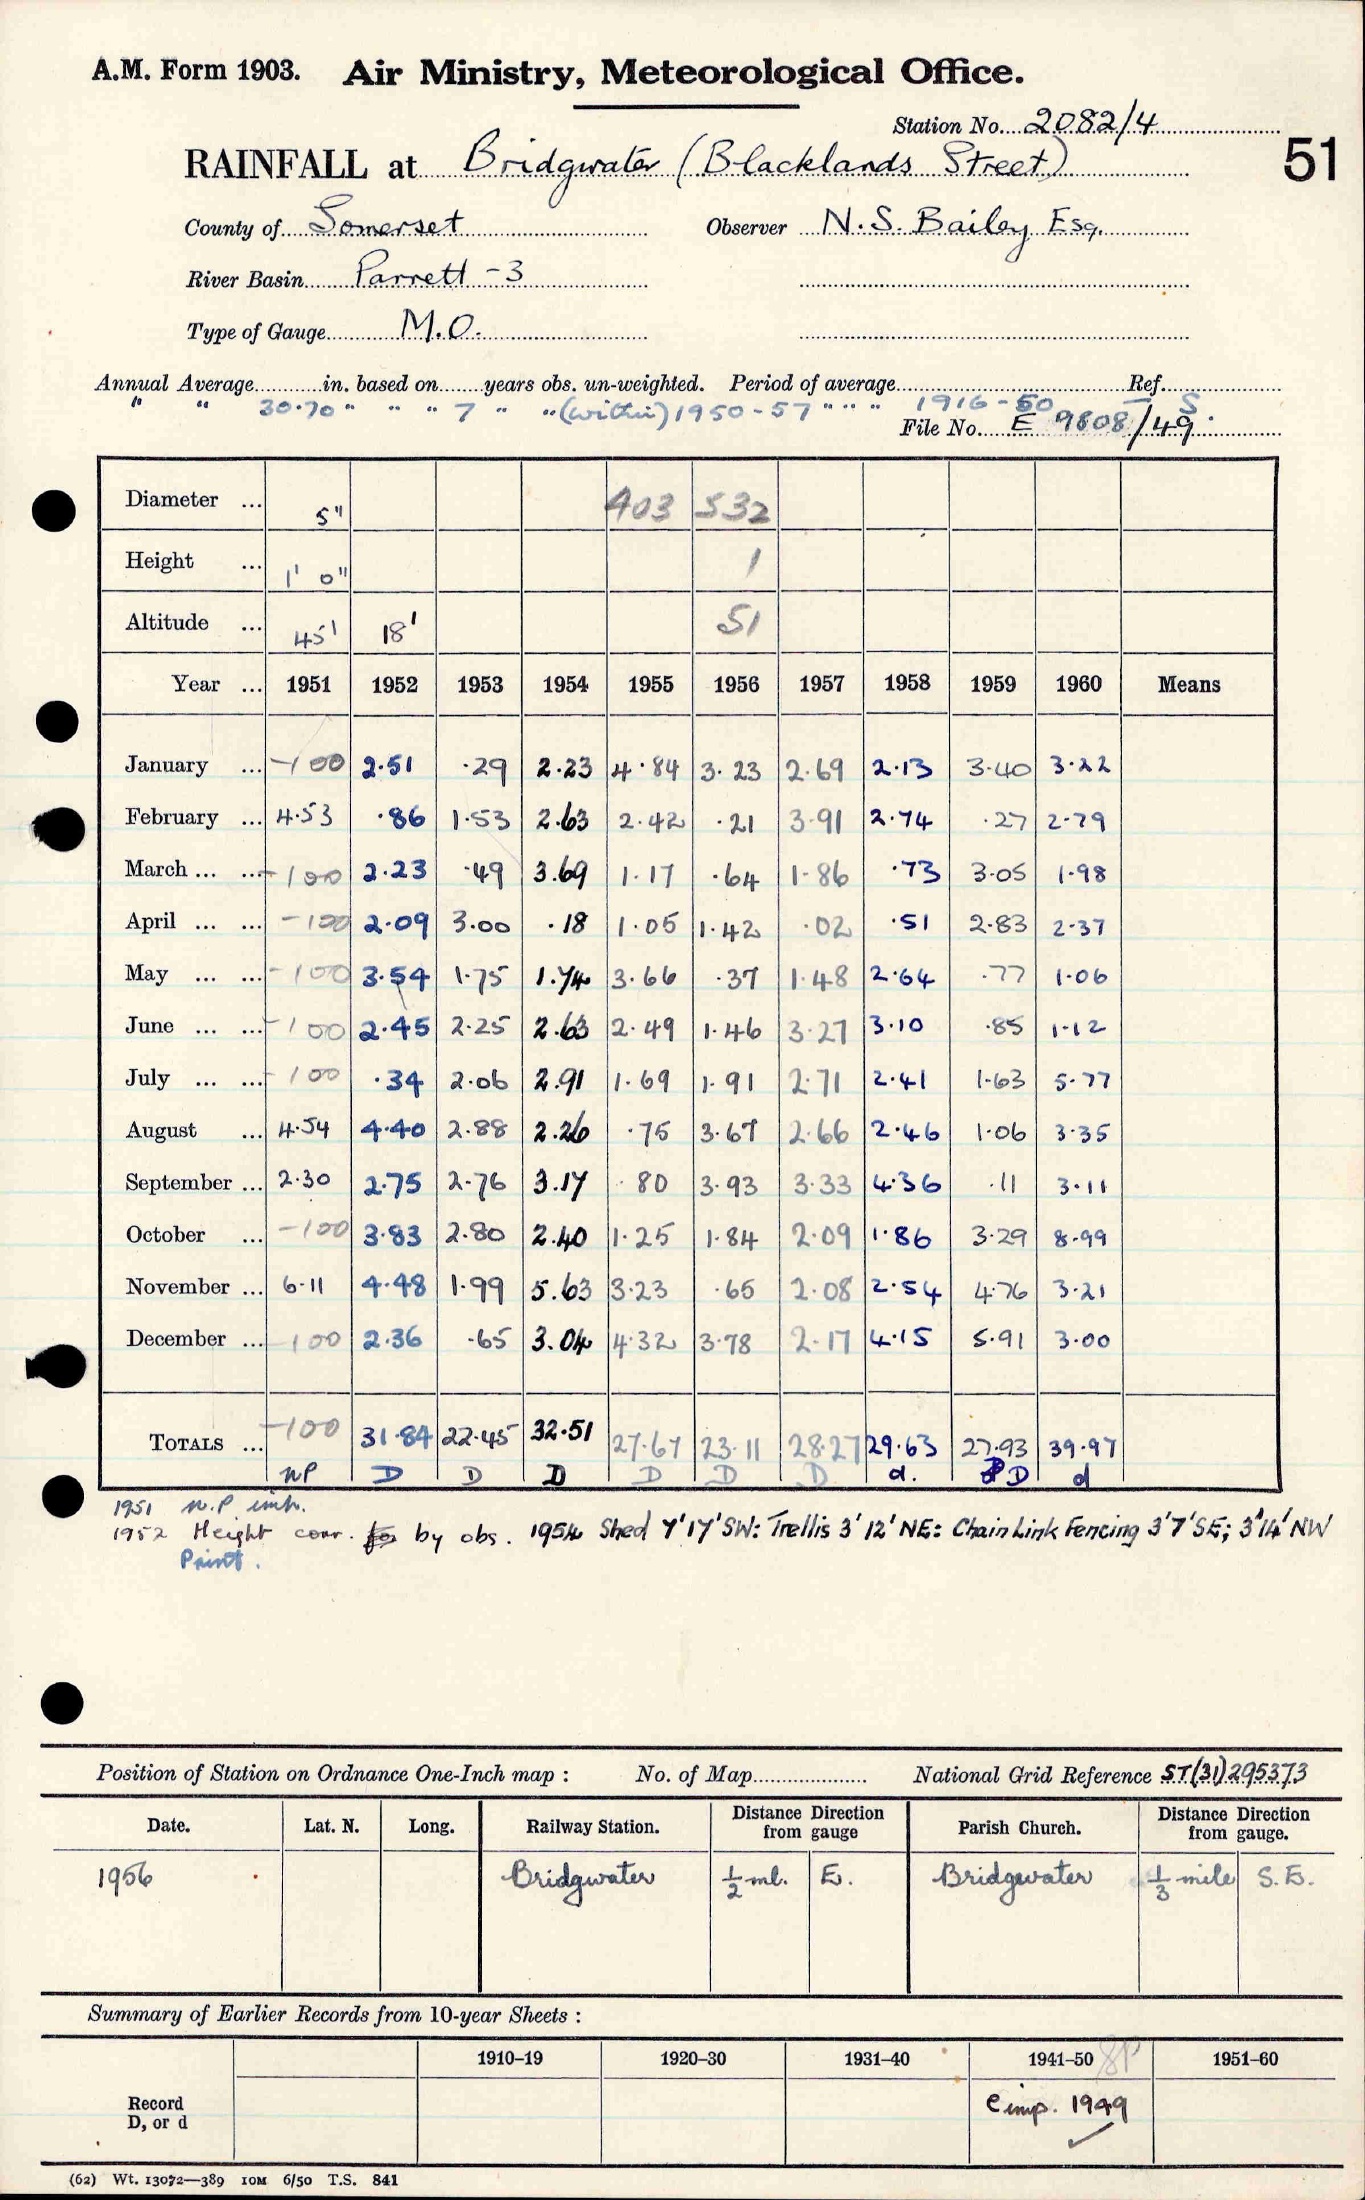 A.M. Form 1903. Air Ministry, Meteorological Office.
Station No. 2082/4
51
RAINFALL at Bridgwater (Blacklands Street)
County of Somerset Observer N.S. Bailey Esq.
River Basin Parrett -3
Type of Gauge M.O.
Annual Average in. based on years obs. un-weighted. Period of average Ref.
" " 30.70 " " " 7 " "(within) 1950-57 " " " 1916-50 S.
File No. E 9808/49
Diameter ... 5" 403 532
Height ... 1' 0" 1
Altitude ... 45' 18' 51
Year ... 1951 1952 1953 1954 1955 1956 1957 1958 1959 1960 Means
January ... -100 2.51 .29 2.23 4.84 3.23 2.69 2.13 3.40 3.22
February ... 4.53 .86 1.53 2.63 2.42 .21 3.91 2.74 .27 2.79
March ... ... -100 2.23 .49 3.69 1.17 .64 1.86 .73 3.05 1.98
April ... ... -100 2.09 3.00 .18 1.05 1.42 .02 .51 2.83 2.37
May ... ... -100 3.54 1.75 1.74 3.66 .37 1.48 2.64 .77 1.06
June ... ... -100 2.45 2.25 2.63 2.49 1.46 3.27 3.10 .85 1.12
July ... ... -100 .34 2.06 2.91 1.69 1.91 2.71 2.41 1.63 5.77
August ... 4.54 4.40 2.88 2.26 .75 3.67 2.66 2.46 1.06 3.35
September ... 2.30 2.75 2.76 3.17 .80 3.93 3.33 4.36 .11 3.11
October ... -100 3.83 2.80 2.40 1.25 1.84 2.09 1.86 3.29 8.99
November ... 6.11 4.48 1.99 5.63 3.23 .65 2.08 2.54 4.76 3.21
December ... -100 2.36 .65 3.04 4.32 3.78 2.17 4.15 5.91 3.00
TOTALS ... -100 31.84 22.45 32.51 27.67 23.11 28.27 29.63 27.93 39.97
NP D D D D D D d. D d
1951 N.P inch.
1952 Height corr. by obs. 1954 Shed 7'17'SW: Trellis 3'12'NE: Chain Link Fencing 3'7'SE; 3'14'NW
Print.
Position of Station on Ordnance One-Inch map : No. of Map National Grid Reference ST(31)295373
Date. Lat. N. Long. Railway Station. Distance Direction from gauge Parish Church. Distance Direction from gauge.
1956 Bridgwater 1/2 ml. E. Bridgewater 1/3 mile S.E.
Summary of Earlier Records from 10-year Sheets :
1910–19 1920–30 1931–40 1941–50 8P 1951–60
Record D, or d Cimp. 1949
(62) Wt. 13072—389 10M 6/50 T.S. 841